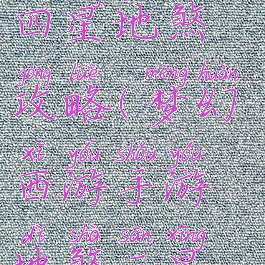 四星地煞
gōng lüè mèng huàn
攻略(梦幻
xī yóu shǒu yóu
西游手游
dì shà sān xīng
地煞三星